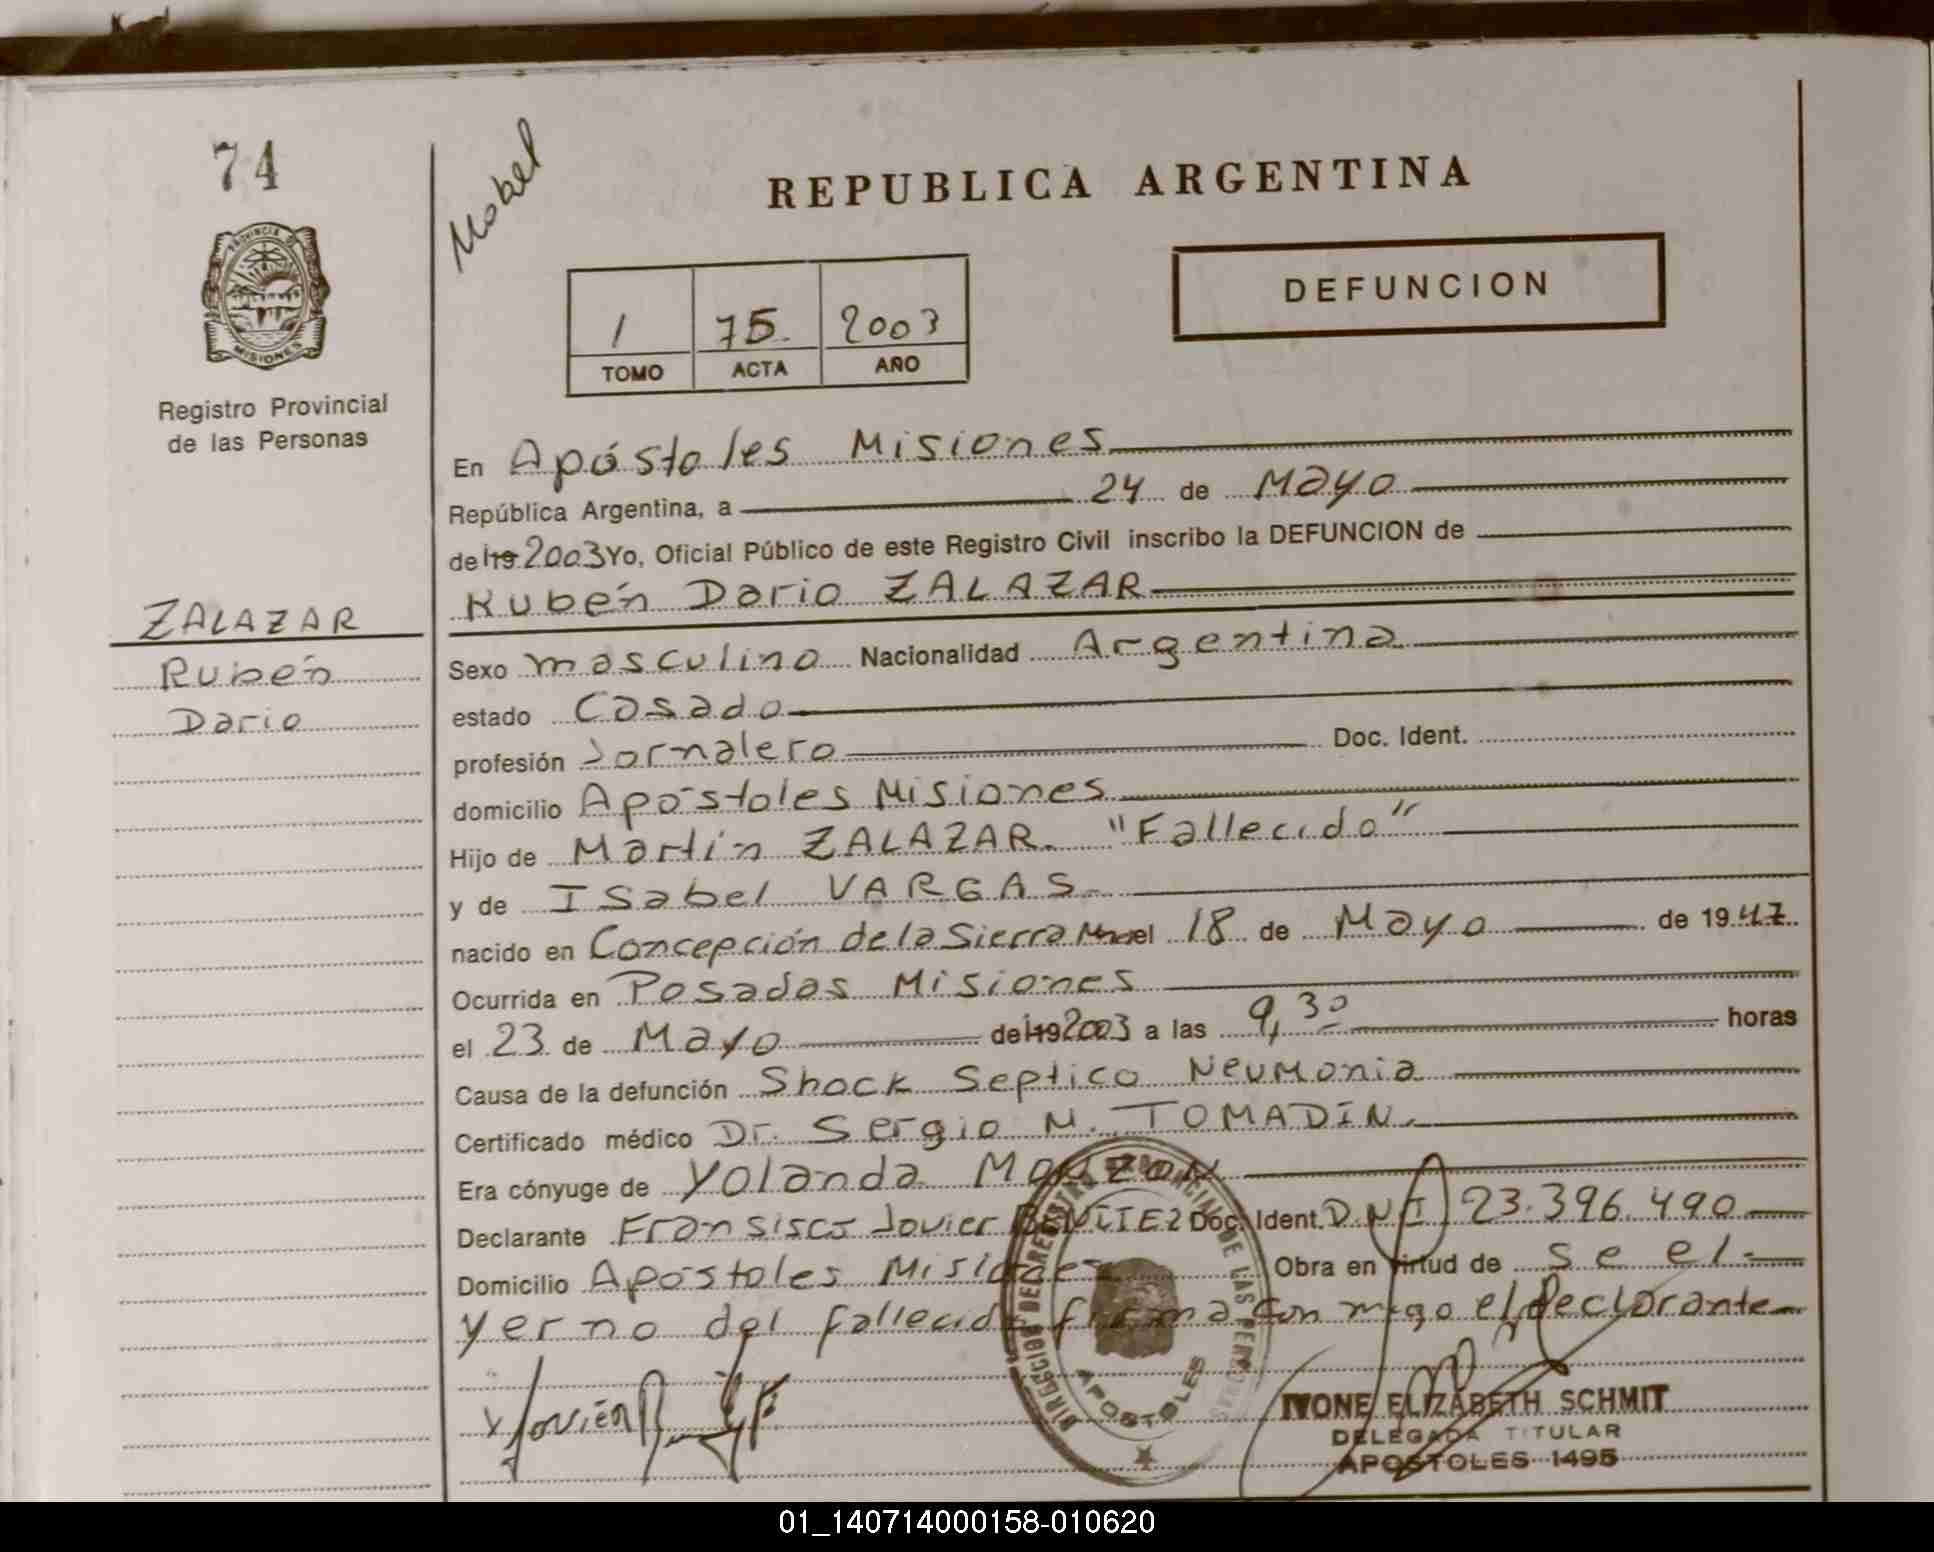 74
Mabel
REPUBLICA ARGENTINA
DEFUNCION
1 75 2003
TOMO ACTA AÑO
PROVINCIA DE
MISIONES
Registro Provincial
de las Personas
ZALAZAR
Rubén
Dario
En Apóstoles Misiones
República Argentina, a 24 de Mayo
del 19 2003 Yo, Oficial Público de este Registro Civil inscribo la DEFUNCION de
Rubén Dario ZALAZAR
Sexo masculino Nacionalidad Argentina
estado Casado
profesión Jornalero Doc. Ident.
domicilio Apóstoles Misiones
Hijo de Martín ZALAZAR. "Fallecido"
y de Isabel VARGAS
nacido en Concepción de la Sierra el 18 de Mayo de 1947
Ocurrida en Posadas Misiones
el 23 de Mayo del 19 2003 a las 9,30 horas
Causa de la defunción Shock Septico Neumonia
Certificado médico Dr. Sergio N. TOMADIN.
Era cónyuge de Yolanda MONZON
Declarante Fransisco Javier BENITEZ Doc. Ident. D.N.I 23.396.490
Domicilio Apóstoles Misiones Obra en virtud de se el
yerno del fallecido firma con migo el Declarante
DIRECCION DEL REGISTRO PROVINCIAL DE LAS PERSONAS
APOSTOLES
IVONE ELIZABETH SCHMIT
DELEGADA TITULAR
APOSTOLES 1495
01_140714000158-010620